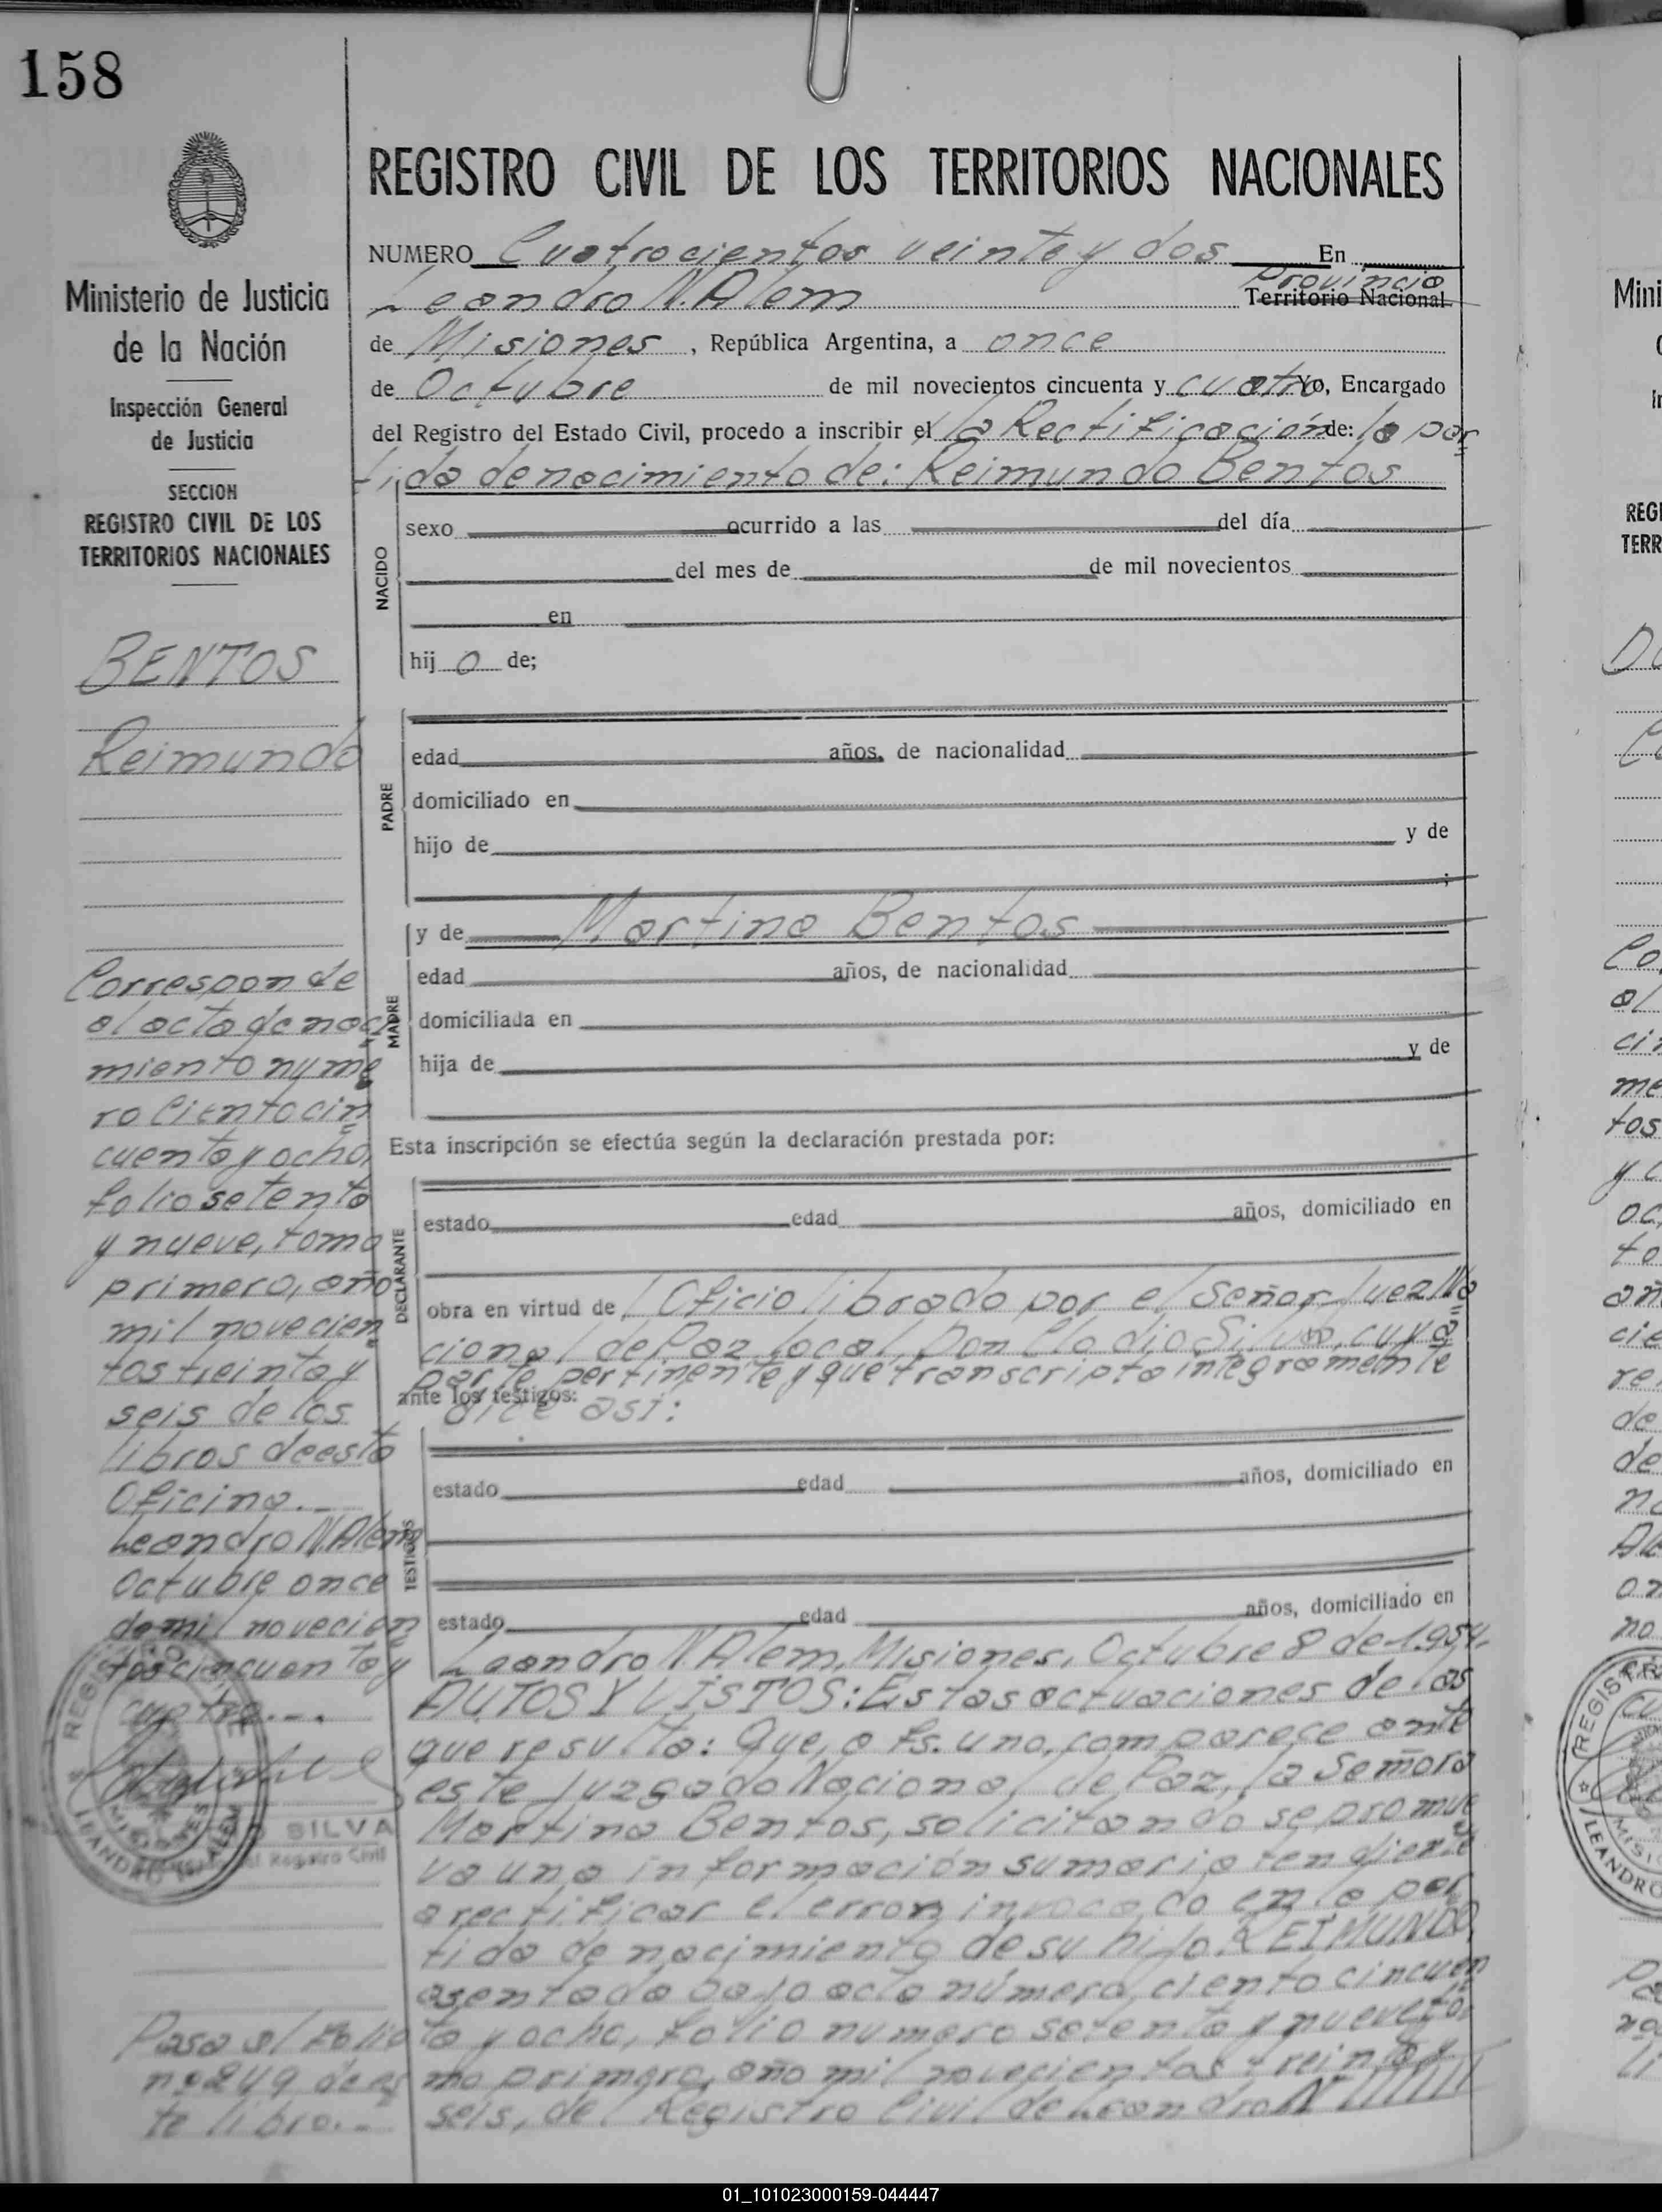 158
Ministerio de Justicia
de la Nación
Inspección General
de Justicia
SECCION
REGISTRO CIVIL DE LOS
TERRITORIOS NACIONALES
BENTOS
Reimundo
Corresponde
al acta de naci
miento nume
ro Ciento cin
cuenta y ocho,
folio setenta
y nueve, tomo
primero, año
mil novecien
tos treinta y
seis de los
libros de esta
Oficina.-
Leandro N. Alem
Octubre once
de mil novecien
tos cincuenta y
cuatro.--
REGISTRO
LEANDRO N. ALEM
MISIONES
SILVA
del Registro Civil
Pasa al folio
nº 249 de es
te libro.-
REGISTRO CIVIL DE LOS TERRITORIOS NACIONALES
NUMERO Cuatrocientos veinte y dos En
Provincia
Leandro N. Alem Territorio Nacional
de Misiones, República Argentina, a once
de Octubre de mil novecientos cincuenta y cuatro Yo, Encargado
del Registro del Estado Civil, procedo a inscribir el la Rectificación de: la par
tida de nacimiento de: Reimundo Bentos
NACIDO
sexo ocurrido a las del día
del mes de de mil novecientos
en
hij o de;
PADRE
edad años, de nacionalidad
domiciliado en
hijo de y de
;
MADRE
y de Martina Bentos
edad años, de nacionalidad
domiciliada en
hija de y de
Esta inscripción se efectúa según la declaración prestada por:
DECLARANTE
estado edad años, domiciliado en
obra en virtud de Oficio librado por el Señor Juez Na
cional de Paz local, Don Cladio Silva, cuya
parte pertinente y que transcripta integramente
ante los testigos: dice asi:
TESTIGOS
estado edad años, domiciliado en
estado edad años, domiciliado en
Leandro N. Alem, Misiones, Octubre 8 de 1.954.
AUTOS Y VISTOS: Estas actuaciones de las
que resulta: Que, a Fs. uno, comparece ante
este Juzgado Nacional de Paz, la Señora
Martina Bentos, solicitando se promue
va una información sumaria tendiente
a rectificar el error invocado en la par
tida de nacimiento de su hijo REIMUNDO,
asentada bajo acta número ciento cincuen
ta y ocho, folio numero setenta y nueve, to
mo primero, año mil novecientos treinta y
seis, del Registro Civil de Leandro N
01_101023000159-044447